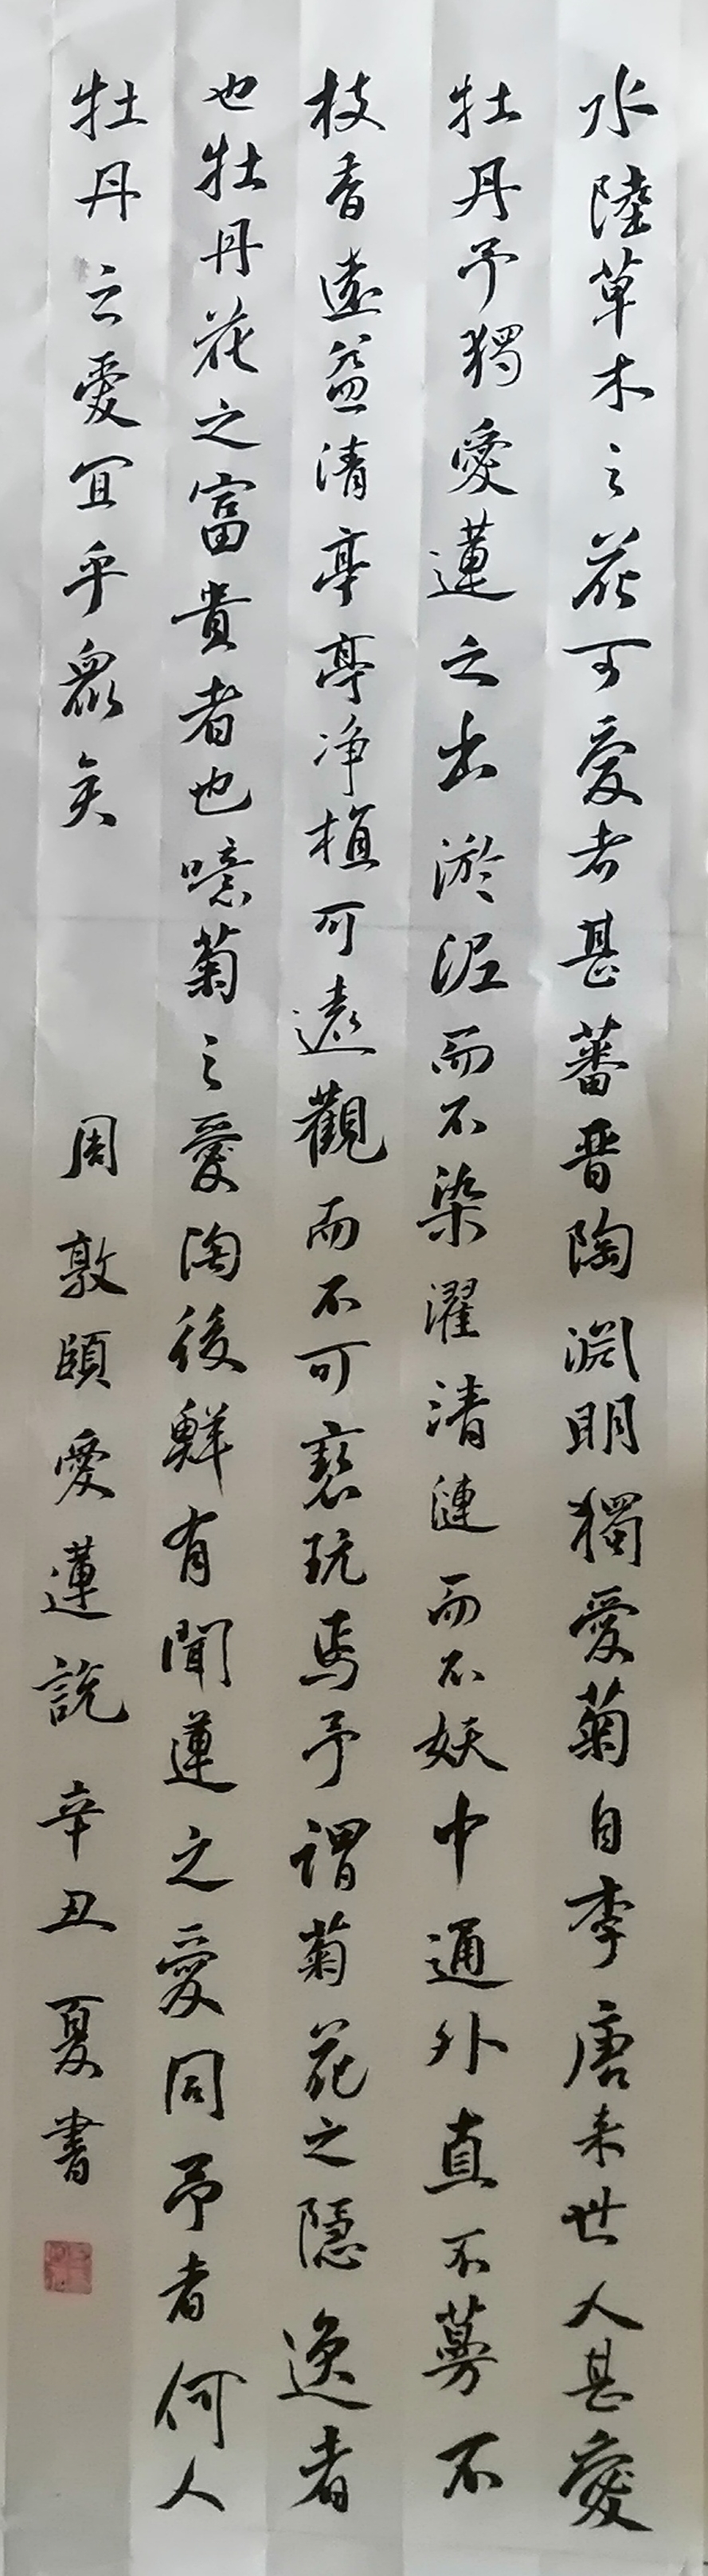 水陸草木之花可愛者甚蕃晋陶淵明獨愛菊自李唐来世人甚愛
牡丹予獨愛蓮之出淤泥而不染濯清漣而不妖中通外直不蔓不
枝香遠益清亭亭净植可遠觀而不可褻玩焉予謂菊花之隱逸者
也牡丹花之富貴者也噫菊之愛陶後鮮有聞蓮之愛同予者何人
牡丹之愛宜乎衆矣 周敦頤愛蓮説 辛丑夏書